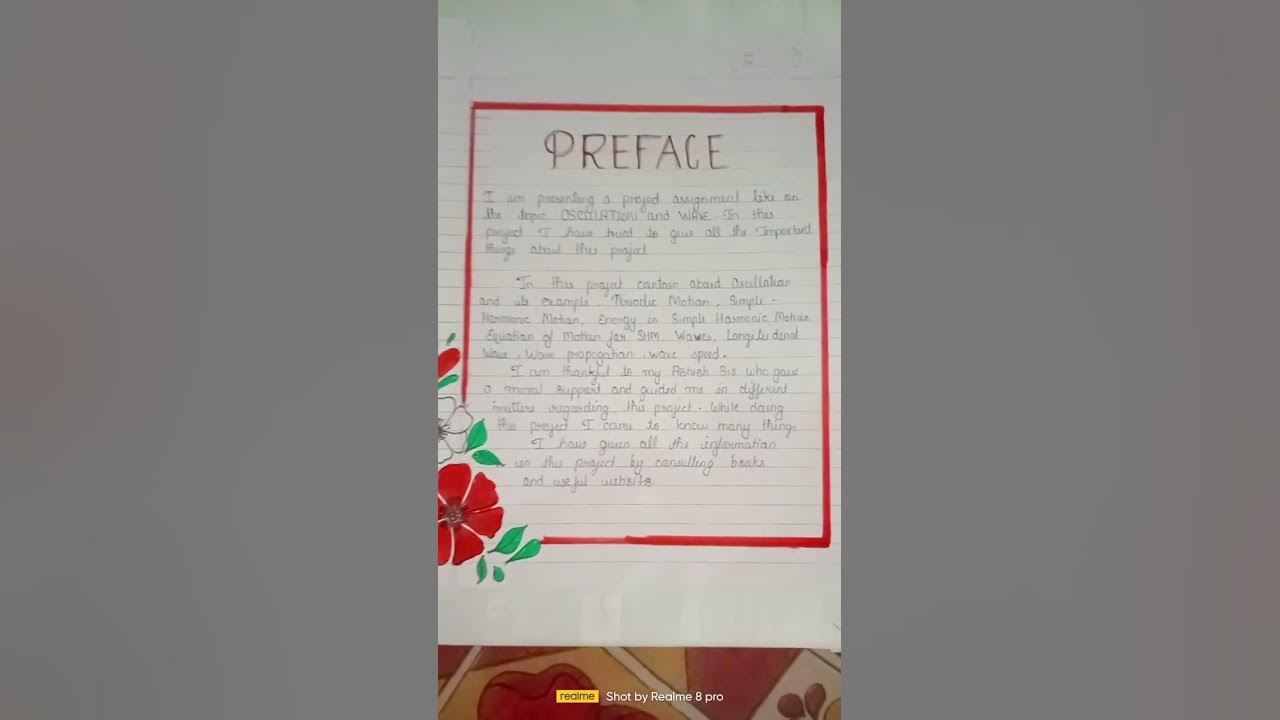 PREFACE
I am presenting a project assignment like on
the topic OSCILLATIONS and WAVE. In this
project I have tried to give all the Important
things about this project
In this project contain about Oscillation
and its example. Periodic Motion, Simple -
Harmonic Motion, Energy in Simple Harmonic Motion
Equation of Motion for SHM, Waves, Longitudenal
Wave, Wave propogation, wave speed.
I am thankful to my Ashish Sir who gave
a moral support and guided me in different
matters regarding this project. While doing
this project I came to know many things
I have given all the information
in this project by consulting books
and useful website.
realme Shot by Realme 8 pro